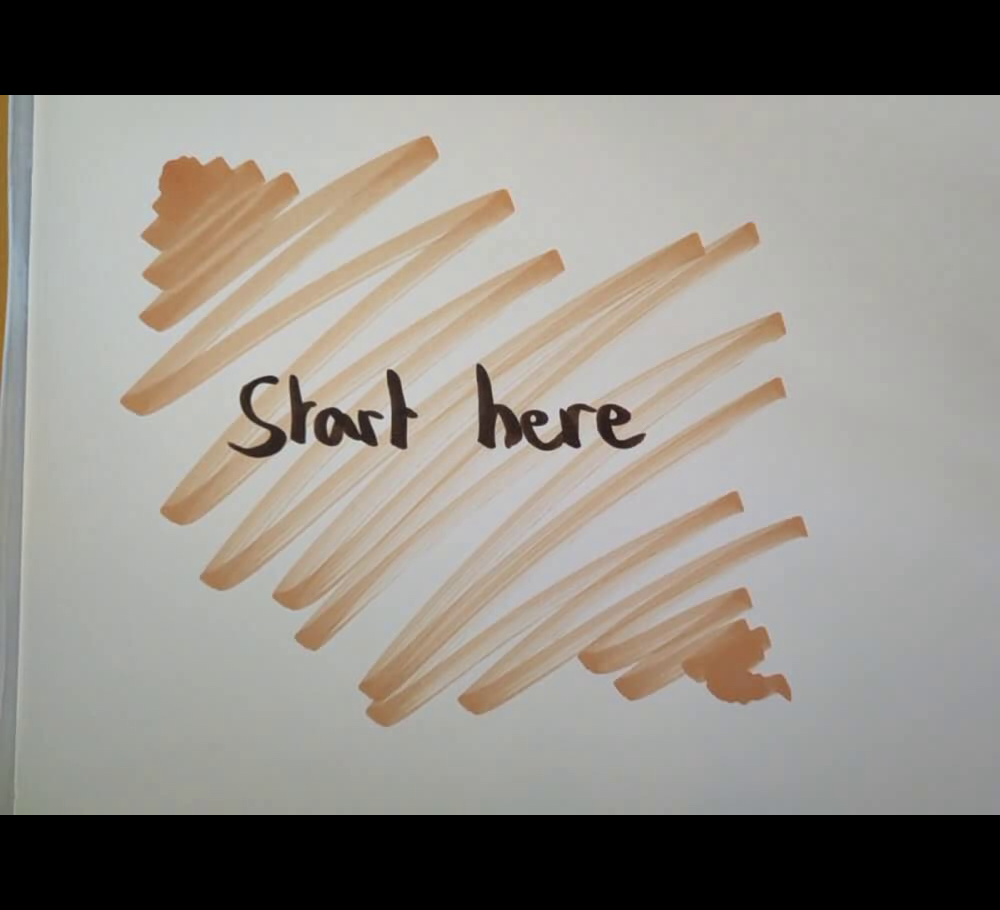 Start here